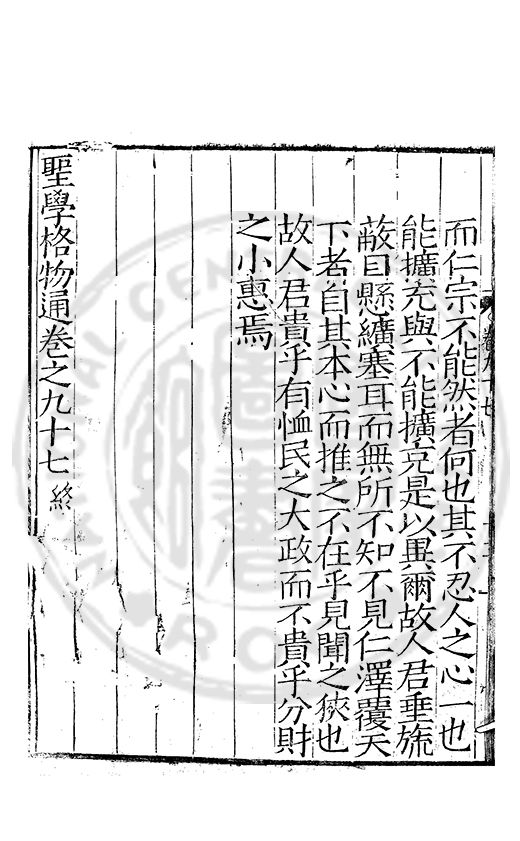 而仁宗不能然者何也其不忍人之心一也
能擴充與不能擴充是以異爾故人君垂旒
蔽目懸纊塞耳而無所不知不見仁澤覆天
下者自其本心而推之不在乎見聞之狹也
故人君貴乎有恤民之大政而不貴乎分財
之小惠焉
聖學格物通卷之九十七 終